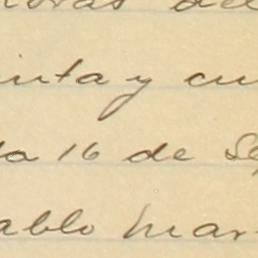 horas del
inta y cu
da 16 de Se
ablo Mar